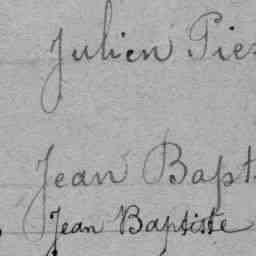 Julien Pie
Jean Bapt
Jean Baptiste